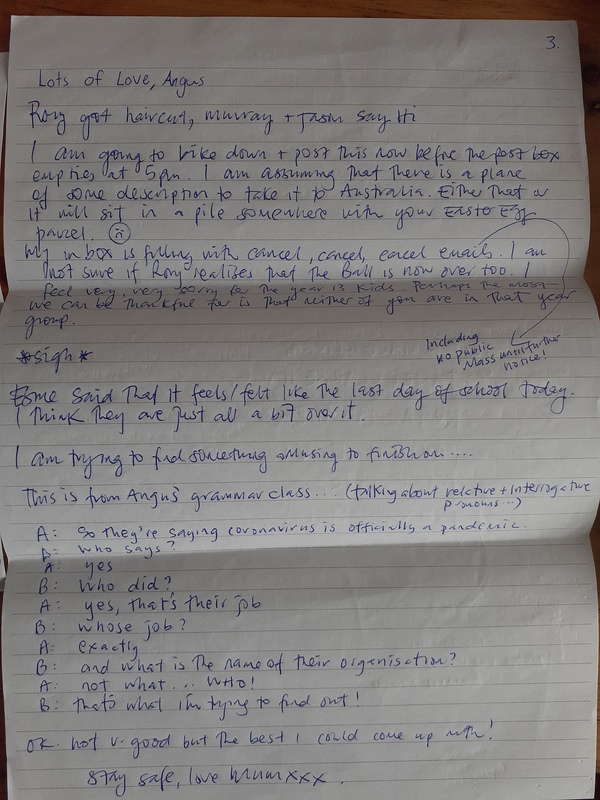 3.
Lots of Love, Angus
Rory got haircut, Murray + say Hi
I am going to bike down + post this now before the post box
empties at 5pm. I am assuming that there is a plane
of some description to take it to Australia. Either that or
it will sit in a pile somewhere with your Easter Egg
parcel. ☹
My in box is filling with cancel, cancel, cancel emails. I am
not sure if Rory realises that the Ball is now over too. I
feel very, very sorry for the year 13 kids. Perhaps the most
we can be thankful for is that neither of you are in that year
group.
Including
no public
Mass until further
notice!
*sigh*
Esme said that it feels/felt like the last day of school today.
I think they are just all a bit over it.
I am trying to find something amusing to finish on....
This is from Angus' grammar class... (talking about relative + interrogative
pronouns...)
A: So they're saying coronavirus is officially a pandemic.
B: Who says?
A: yes
B: Who did?
A: yes, that's their job
B: whose job?
A: exactly
B: and what is the name of their organisation?
A: not what... WHO!
B: that's what i'm trying to find out!
OK. not v. good but the best I could come up with!
Stay safe, love Mum xxx.